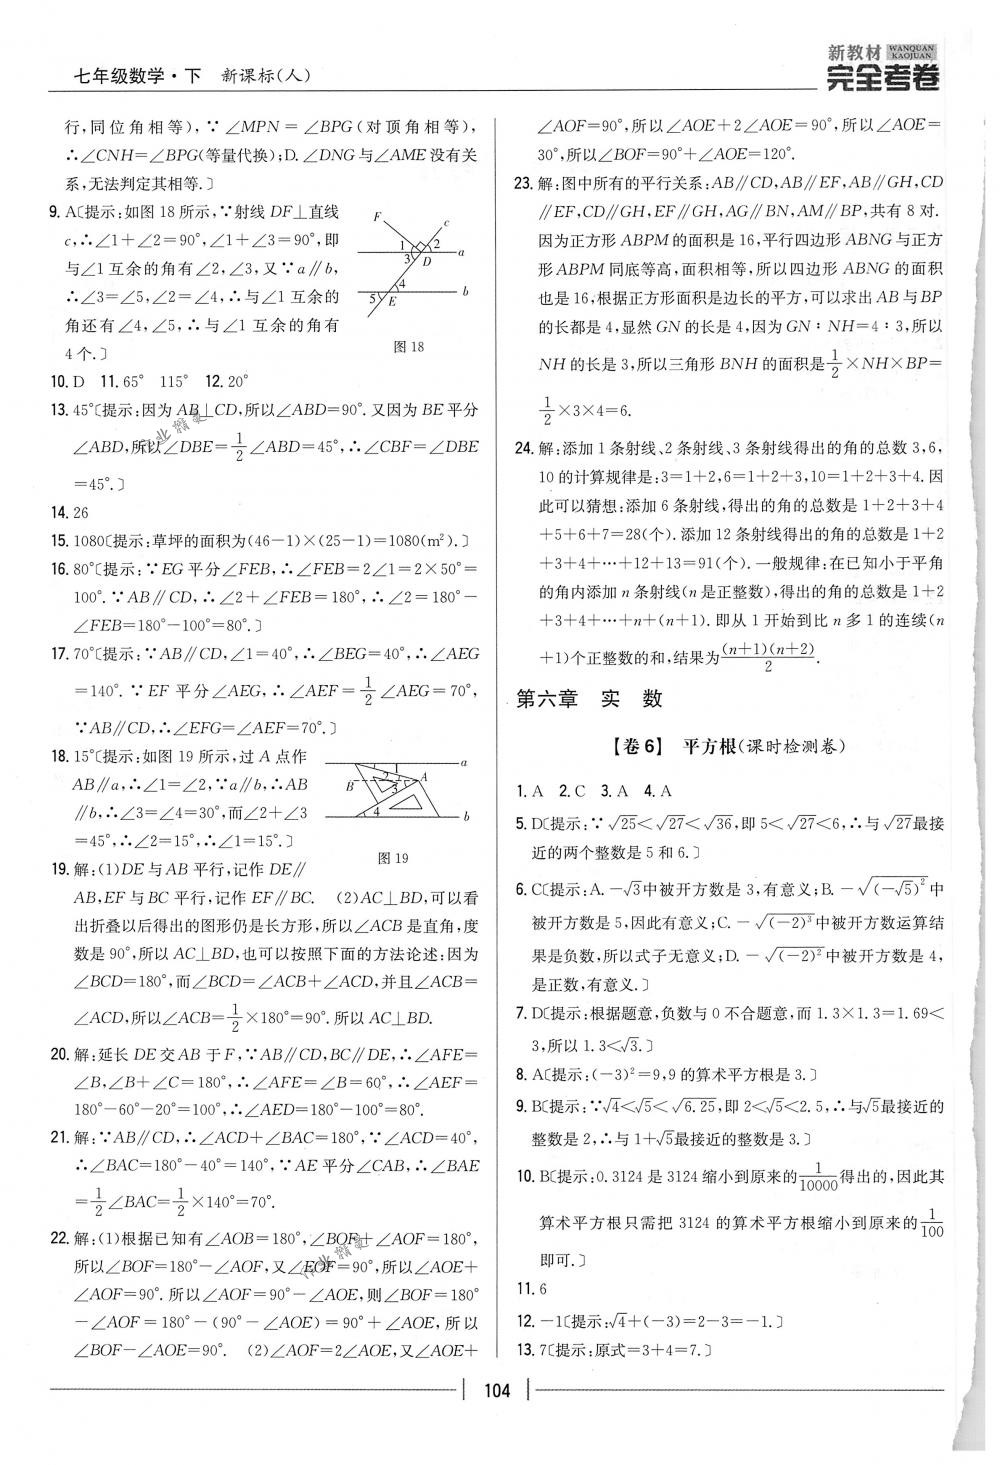 七年级数学·下 新课标(人)
新教材 WANQUAN KAOJUAN
完全考卷
行,同位角相等),∵∠MPN=∠BPG(对顶角相等),
∴∠CNH=∠BPG(等量代换);D.∠DNG与∠AME没有关
系,无法判定其相等.〕
9. A〔提示:如图18所示,∵射线DF⊥直线
c,∴∠1+∠2=90°,∠1+∠3=90°,即
与∠1互余的角有∠2,∠3,又∵a∥b,
∴∠3=∠5,∠2=∠4,∴与∠1互余的
角还有∠4,∠5,∴与∠1互余的角有
4个.〕
F c
1 2 a
3 D
4
5 E b
图18
10. D 11. 65° 115° 12. 20°
13. 45°〔提示:因为AB⊥CD,所以∠ABD=90°.又因为BE平分
∠ABD,所以∠DBE=1/2∠ABD=45°,∴∠CBF=∠DBE
=45°.〕
14. 26
15. 1080〔提示:草坪的面积为(46-1)×(25-1)=1080(m²).〕
16. 80°〔提示:∵EG平分∠FEB,∴∠FEB=2∠1=2×50°=
100°.∵AB∥CD,∴∠2+∠FEB=180°,∴∠2=180°-
∠FEB=180°-100°=80°.〕
17. 70°〔提示:∵AB∥CD,∠1=40°,∴∠BEG=40°,∴∠AEG
=140°.∵EF平分∠AEG,∴∠AEF=1/2∠AEG=70°,
∵AB∥CD,∴∠EFG=∠AEF=70°.〕
18. 15°〔提示:如图19所示,过A点作
AB∥a,∴∠1=∠2,∵a∥b,∴AB
∥b,∴∠3=∠4=30°,而∠2+∠3
=45°,∴∠2=15°,∴∠1=15°.〕
1 a
2
B 3 A
4 b
图19
19. 解:(1)DE与AB平行,记作DE∥
AB,EF与BC平行,记作EF∥BC. (2)AC⊥BD,可以看
出折叠以后得出的图形仍是长方形,所以∠ACB是直角,度
数是90°,所以AC⊥BD,也可以按照下面的方法论述:因为
∠BCD=180°,而∠BCD=∠ACB+∠ACD,并且∠ACB=
∠ACD,所以∠ACB=1/2×180°=90°.所以AC⊥BD.
20. 解:延长DE交AB于F,∵AB∥CD,BC∥DE,∴∠AFE=
∠B,∠B+∠C=180°,∴∠AFE=∠B=60°,∴∠AEF=
180°-60°-20°=100°,∴∠AED=180°-100°=80°.
21. 解:∵AB∥CD,∴∠ACD+∠BAC=180°,∵∠ACD=40°,
∴∠BAC=180°-40°=140°,∵AE平分∠CAB,∴∠BAE
=1/2∠BAC=1/2×140°=70°.
22. 解:(1)根据已知有∠AOB=180°,∠BOF+∠AOF=180°,
所以∠BOF=180°-∠AOF,又∠EOF=90°,所以∠AOE+
∠AOF=90°.所以∠AOF=90°-∠AOE,则∠BOF=180°
-∠AOF=180°-(90°-∠AOE)=90°+∠AOE,所以
∠BOF-∠AOE=90°. (2)∠AOF=2∠AOE,又∠AOE+
∠AOF=90°,所以∠AOE+2∠AOE=90°,所以∠AOE=
30°,所以∠BOF=90°+∠AOE=120°.
23. 解:图中所有的平行关系:AB∥CD,AB∥EF,AB∥GH,CD
∥EF,CD∥GH,EF∥GH,AG∥BN,AM∥BP,共有8对.
因为正方形ABPM的面积是16,平行四边形ABNG与正方
形ABPM同底等高,面积相等,所以四边形ABNG的面积
也是16,根据正方形面积是边长的平方,可以求出AB与BP
的长都是4,显然GN的长是4,因为GN∶NH=4∶3,所以
NH的长是3,所以三角形BNH的面积是1/2×NH×BP=
1/2×3×4=6.
24. 解:添加1条射线、2条射线、3条射线得出的角的总数3,6,
10的计算规律是:3=1+2,6=1+2+3,10=1+2+3+4.因
此可以猜想:添加6条射线,得出的角的总数是1+2+3+4
+5+6+7=28(个).添加12条射线得出的角的总数是1+2
+3+4+…+12+13=91(个).一般规律:在已知小于平角
的角内添加n条射线(n是正整数),得出的角的总数是1+2
+3+4+…+n+(n+1).即从1开始到比n多1的连续(n
+1)个正整数的和,结果为(n+1)(n+2)/2.
第六章 实 数
【卷6】 平方根(课时检测卷)
1. A 2. C 3. A 4. A
5. D〔提示:∵√25<√27<√36,即5<√27<6,∴与√27最接
近的两个整数是5和6.〕
6. C〔提示:A.-√3中被开方数是3,有意义;B.-√(-√5)²中
被开方数是5,因此有意义;C.-√(-2)³中被开方数运算结
果是负数,所以式子无意义;D.-√(-2)²中被开方数是4,
是正数,有意义.〕
7. D〔提示:根据题意,负数与0不合题意,而1.3×1.3=1.69<
3,所以1.3<√3.〕
8. A〔提示:(-3)²=9,9的算术平方根是3.〕
9. B〔提示:∵√4<√5<√6.25,即2<√5<2.5,∴与√5最接近的
整数是2,∴与1+√5最接近的整数是3.〕
10. B〔提示:0.3124是3124缩小到原来的1/10000得出的,因此其
算术平方根只需把3124的算术平方根缩小到原来的1/100
即可.〕
11. 6
12. -1〔提示:√4+(-3)=2-3=-1.〕
13. 7〔提示:原式=3+4=7.〕
104